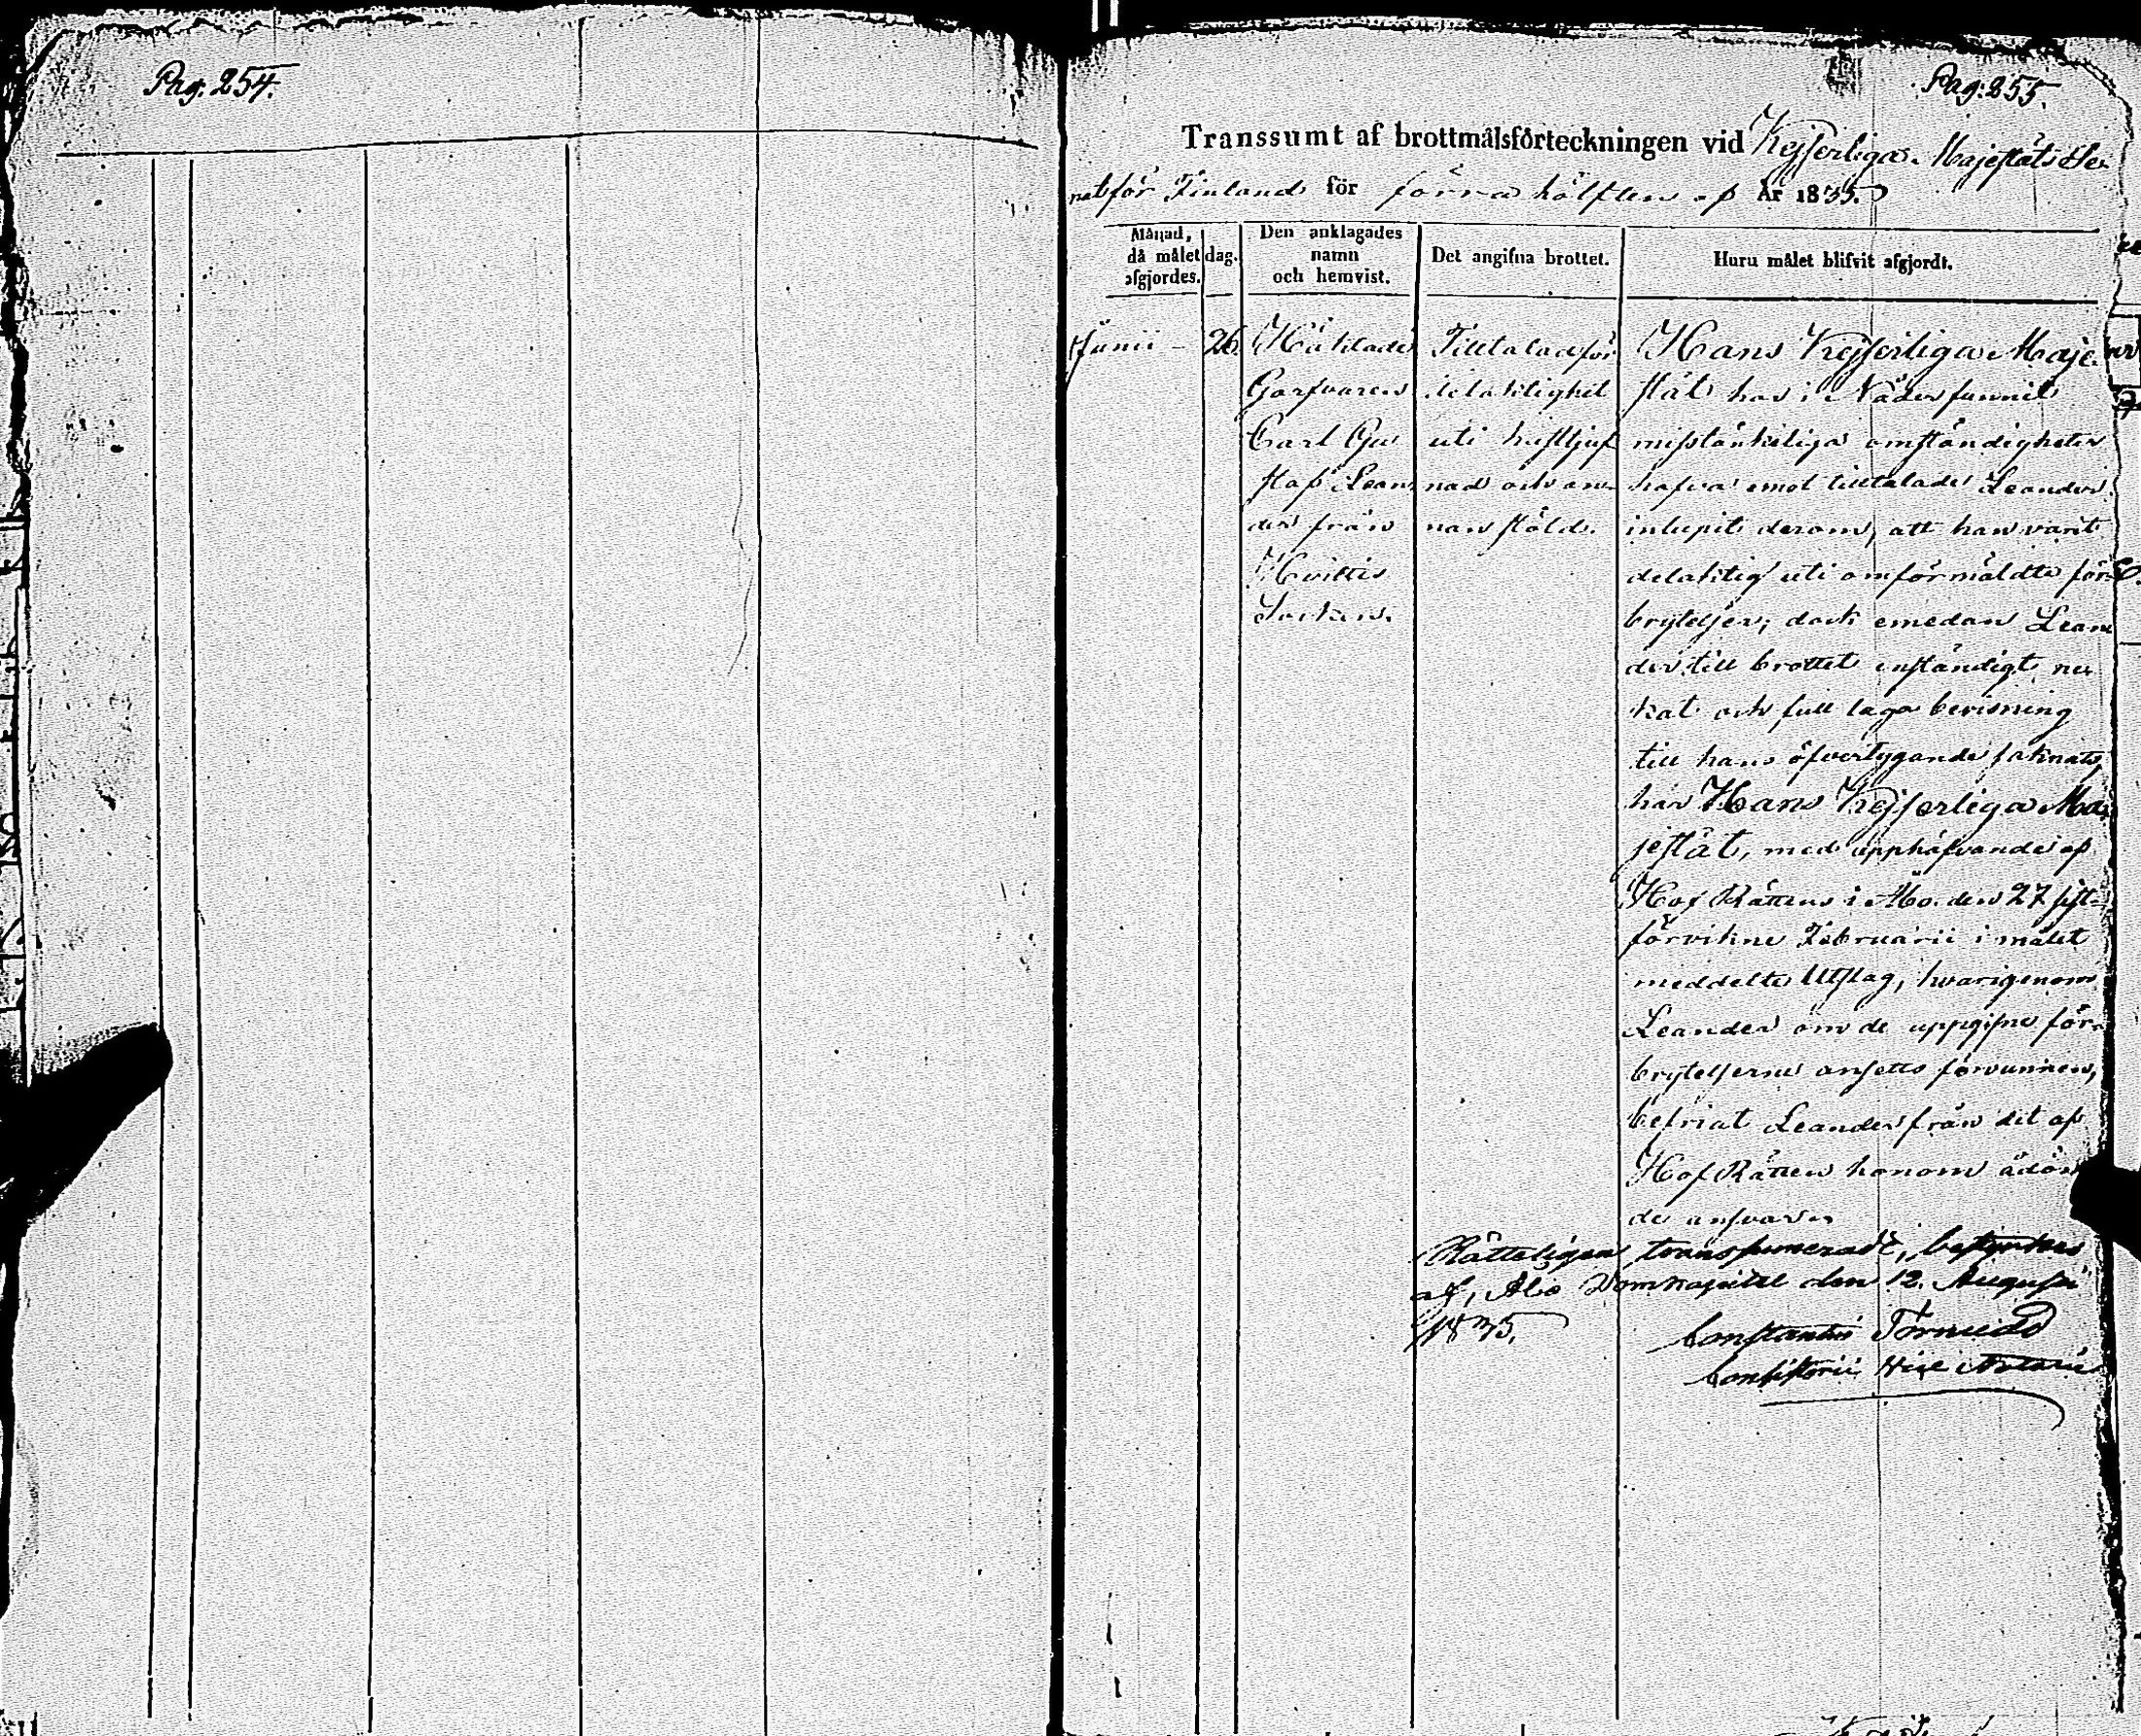 Pag: 254.
Pag: 255.
Transsumt af brottmålsförteckningen vid Kejserliga Majestäts Se-
nat för Finland för förra hälften af År 1835.
Månad, då målet afgjordes.
dag.
Den anklagades namn och hemvist.
Det angifna brottet.
Huru målet blifvit afgjordt.
Junii - 26.
Häktade
Garfvaren
Carl Gu
staf Lean
der från
Hvittis
Socken.
Tilltalad för
delaktighet
uti hästtjuf
nad och an-
nan stöld.
Hans Kejserliga Maje-
stät har i Nåder funnit
misstänkeliga omständigheter
hafva emot tilltalade Leander
inlupit derom, att han varit
delaktig uti omförmäldte för-
brytelser; dock emedan Lean
der till brottet enständigt ne-
kat och full laga bevisning
till hans öfvertygande saknats,
har Hans Kejserliga Ma-
jestät, med upphäfvande af
Hof Rättens i Åbo den 27 sist-
förvikne Februarii i målet
meddelte Utslag, hvarigenom
Leander om de uppgifne för-
brytelserne ansetts förvunnen,
befriat Leander från det af
Hof Rätten honom ådöm
de ansvar.
Rätteligen transsumeradt, bestyrkes
af, Åbo Domkapitel den 12. Augusti
1835.
Constantin
Consistorii Vice Notarie